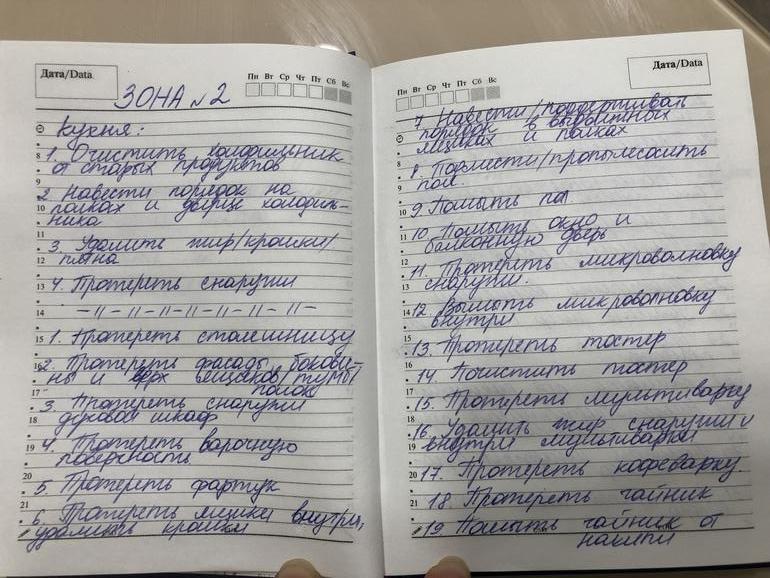 Дата/Data
Пн Вт Ср Чт Пт Сб Вс
ЗОНА №2
Кухня:
8 1. Очистить холодильник
от старых продуктов
9
2 Навести порядок на
10 полках и дверце холодиль-
ника
11
3 Удалить жир/крошки/
12 пятна
13 4. Протереть снаружи
14 –//–//–//–//–//–//–//–
15 1. Протереть столешницу
16 2. Протереть фасады, бокови-
ны и верх ящиков/тумб/
17 полок
3. Протереть снаружи
18 духовой шкаф
19 4. Протереть варочную
поверхность
20
5. Протереть фартук
21
6. Протереть ящики внутри,
удалить крошки
Дата/Data
Пн Вт Ср Чт Пт Сб Вс
7 Навести/поддерживать
8 порядок в выдвижных
ящиках и полках
8. Подмести/пропылесосить
9 пол.
10 9. Помыть пол
11 10. Помыть окно и
балконную дверь
12
11. Протереть микроволновку
13 снаружи.
14 12. Вымыть микроволновку
внутри
15 13. Протереть тостер
16
14. Почистить тостер
17
15. Протереть мультиварку
18
16. Удалить жир снаружи и
19 внутри мультиварки
20 17. Протереть кофеварку.
21 18. Протереть чайник
19. Помыть чайник от
накипи